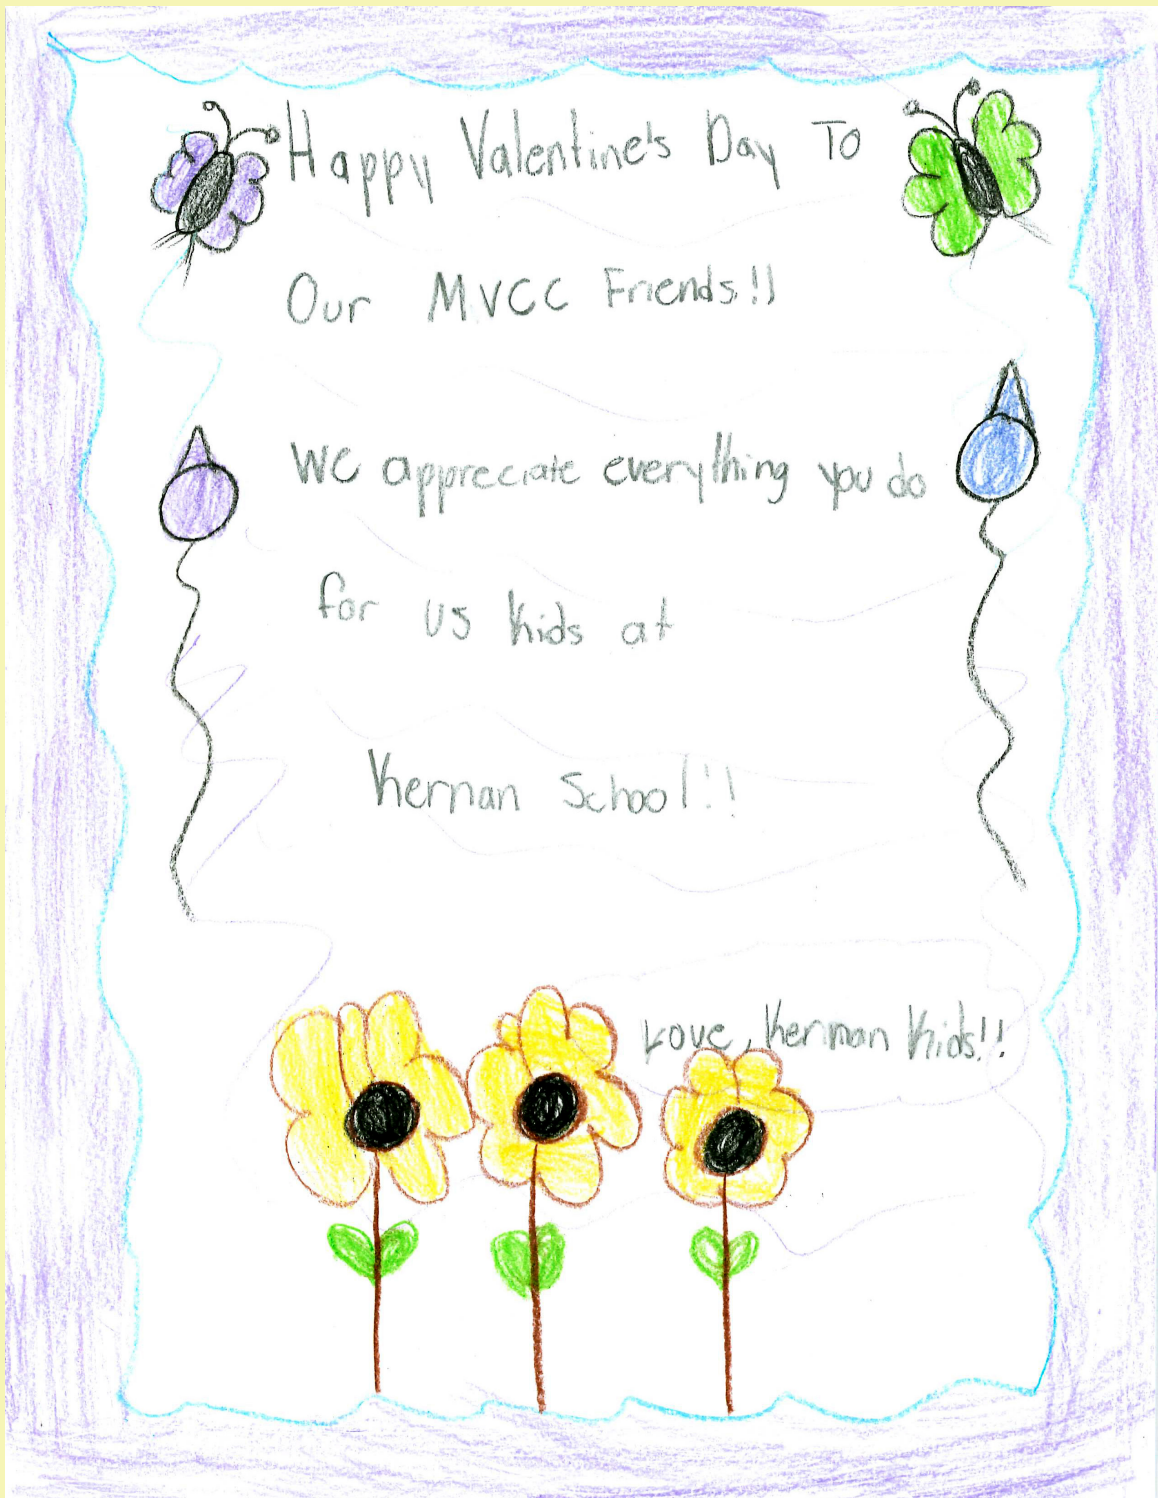 Happy Valentine's Day To
Our MVCC Friends!!
We appreciate everything you do
for us kids at
Kernan School!!
Love, Kernan Kids!!